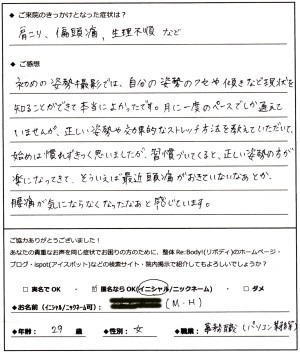 ◆ ご来院のきっかけとなった症状は？
肩こり、偏頭痛、生理不順 など
◆ ご感想
初めの姿勢撮影では、自分の姿勢のクセや傾きなど現状を
知ることができて本当によかったです。月に一度のペースでしか通えて
いませんが、正しい姿勢や効果的なストレッチ方法を教えていただいて、
始めは慣れずきつく思いましたが、習慣づいてくると、正しい姿勢の方が
楽になってきて、そういえば最近頭痛がおきていないなぁとか、
腰痛が気にならなくなったなぁと感じています。
ご協力ありがとうございました！
あなたの貴重なお声を同じ症状でお困りの方のために、整体 Re:Body!(リボディ)のホームページ・
ブログ・ispot(アイスポット)などの検索サイト・院内掲示で紹介してもよろしいでしょうか？
□ 実名でOK ・ 匿名ならOK(イニシャル/ニックネーム) ・ □ ダメ
◆お名前 (イニシャル/ニックネーム可)： (M・H)
◆年齢： 29 歳 ◆性別： 女 ◆職業： 事務職(パソコン業務等)